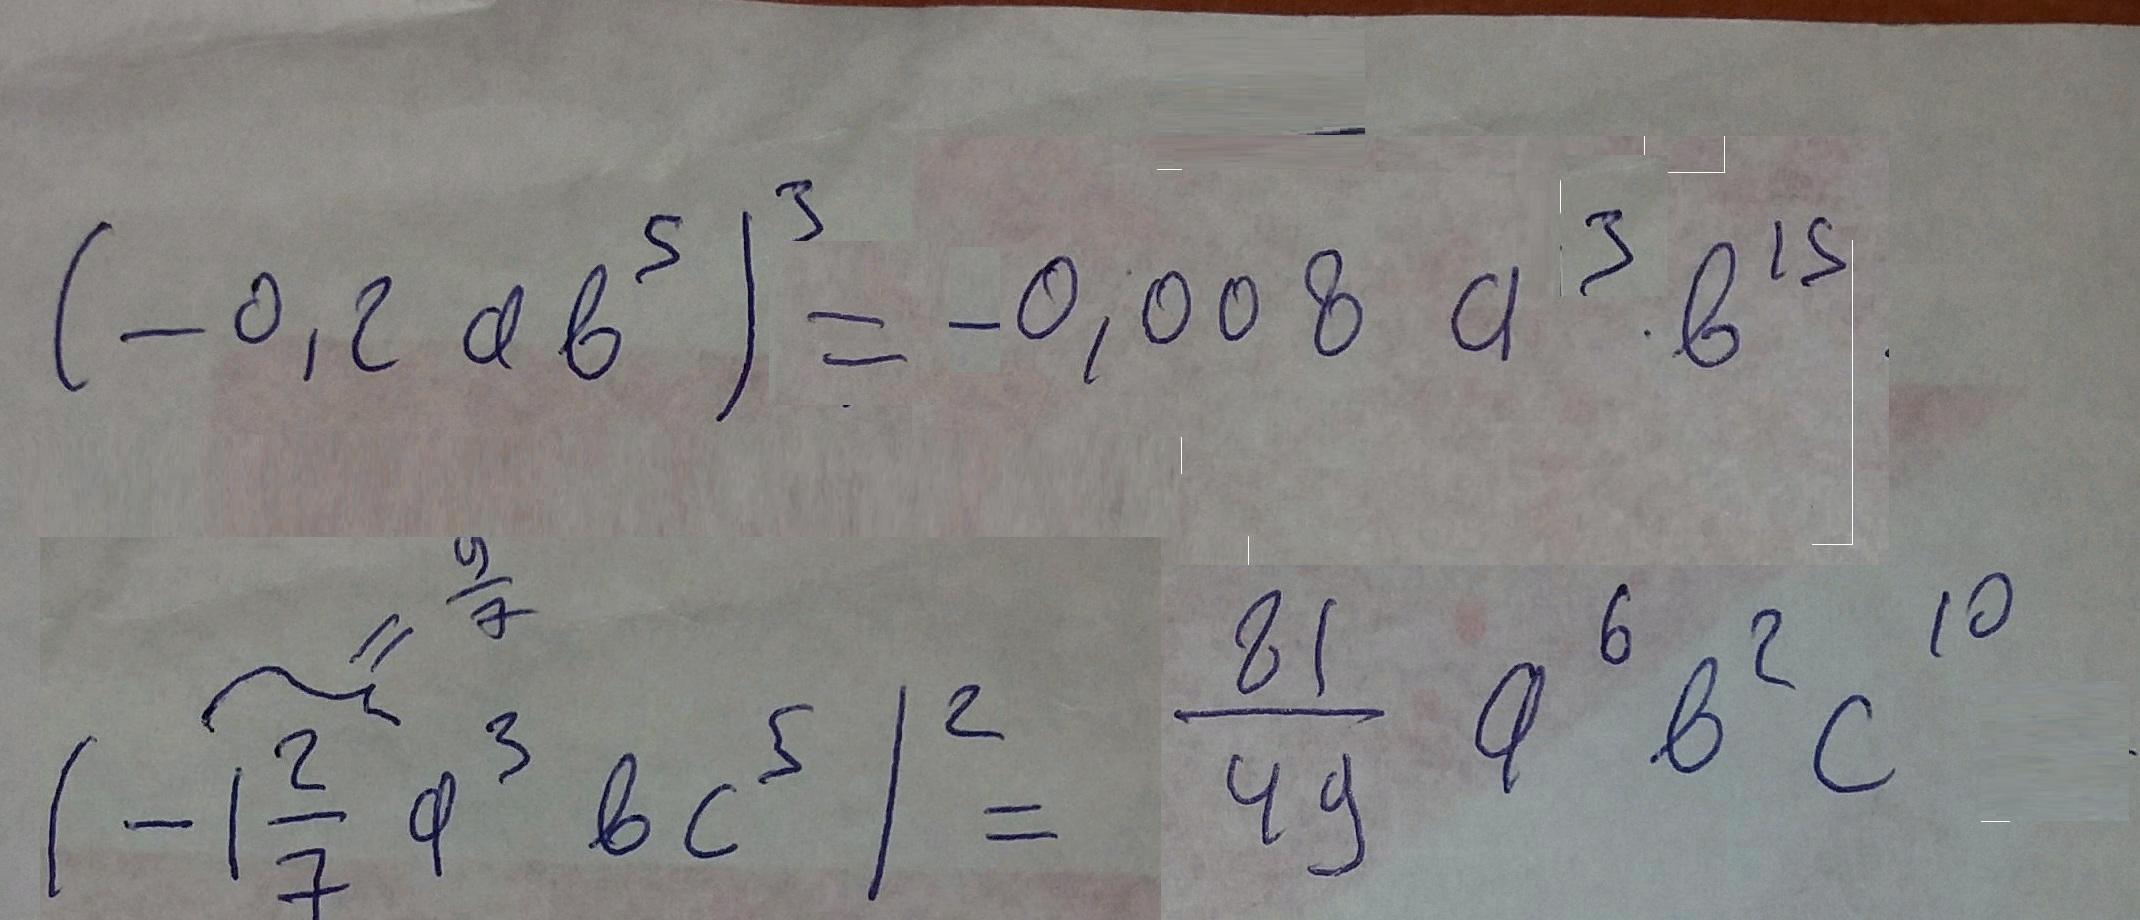 (-0,2 ab⁵)³ = -0,008 a³ · b¹⁵.
= 9/7
(-1 2/7 a³ bc⁵)² = 81/49 a⁶ b² c¹⁰